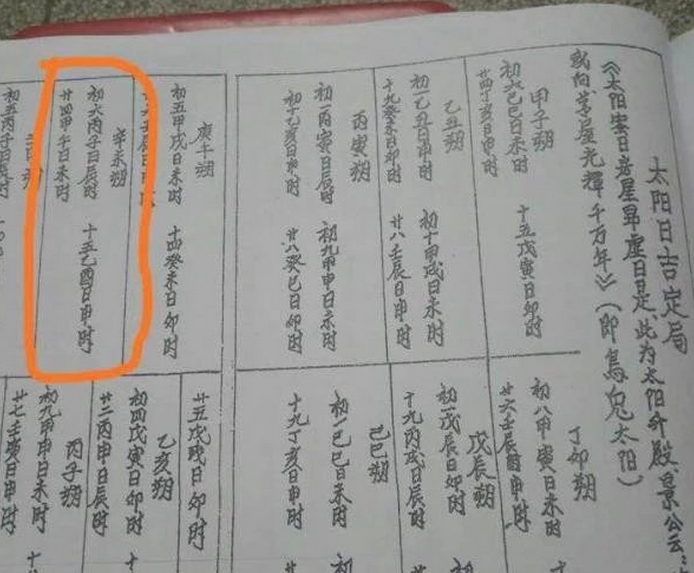 太阳日吉定局
《太阳密日房星昴虚日是,此为太阳升殿.景公云:
星光輝千万年》(即烏兔太阳)
甲子朔
初六己巳日未时
十五戊寅日卯时
廿四丁亥日申时
乙丑朔
初一乙丑日申时
初十甲戌日未时
十九癸未日卯时
廿八壬辰日申时
丙寅朔
初一丙寅日辰时
初九甲申日未时
初十乙亥日申时
廿八癸巳日卯时
庚午朔
初五甲戌日未时
十四癸未日卯时
辛未朔
初六丙子日辰时
十五乙酉日申时
廿四甲午日未时
丁卯朔
初八甲寅日未时
廿六壬辰申时
戊辰朔
初一戊辰日卯时
十九丙戌日辰时
己巳朔
初一己巳日未时
十九丁亥日申时
廿五戊戌日卯时
乙亥朔
初四戊寅日卯时
廿二丙申日辰时
丙子朔
初九甲申日未时
廿七壬寅日申时